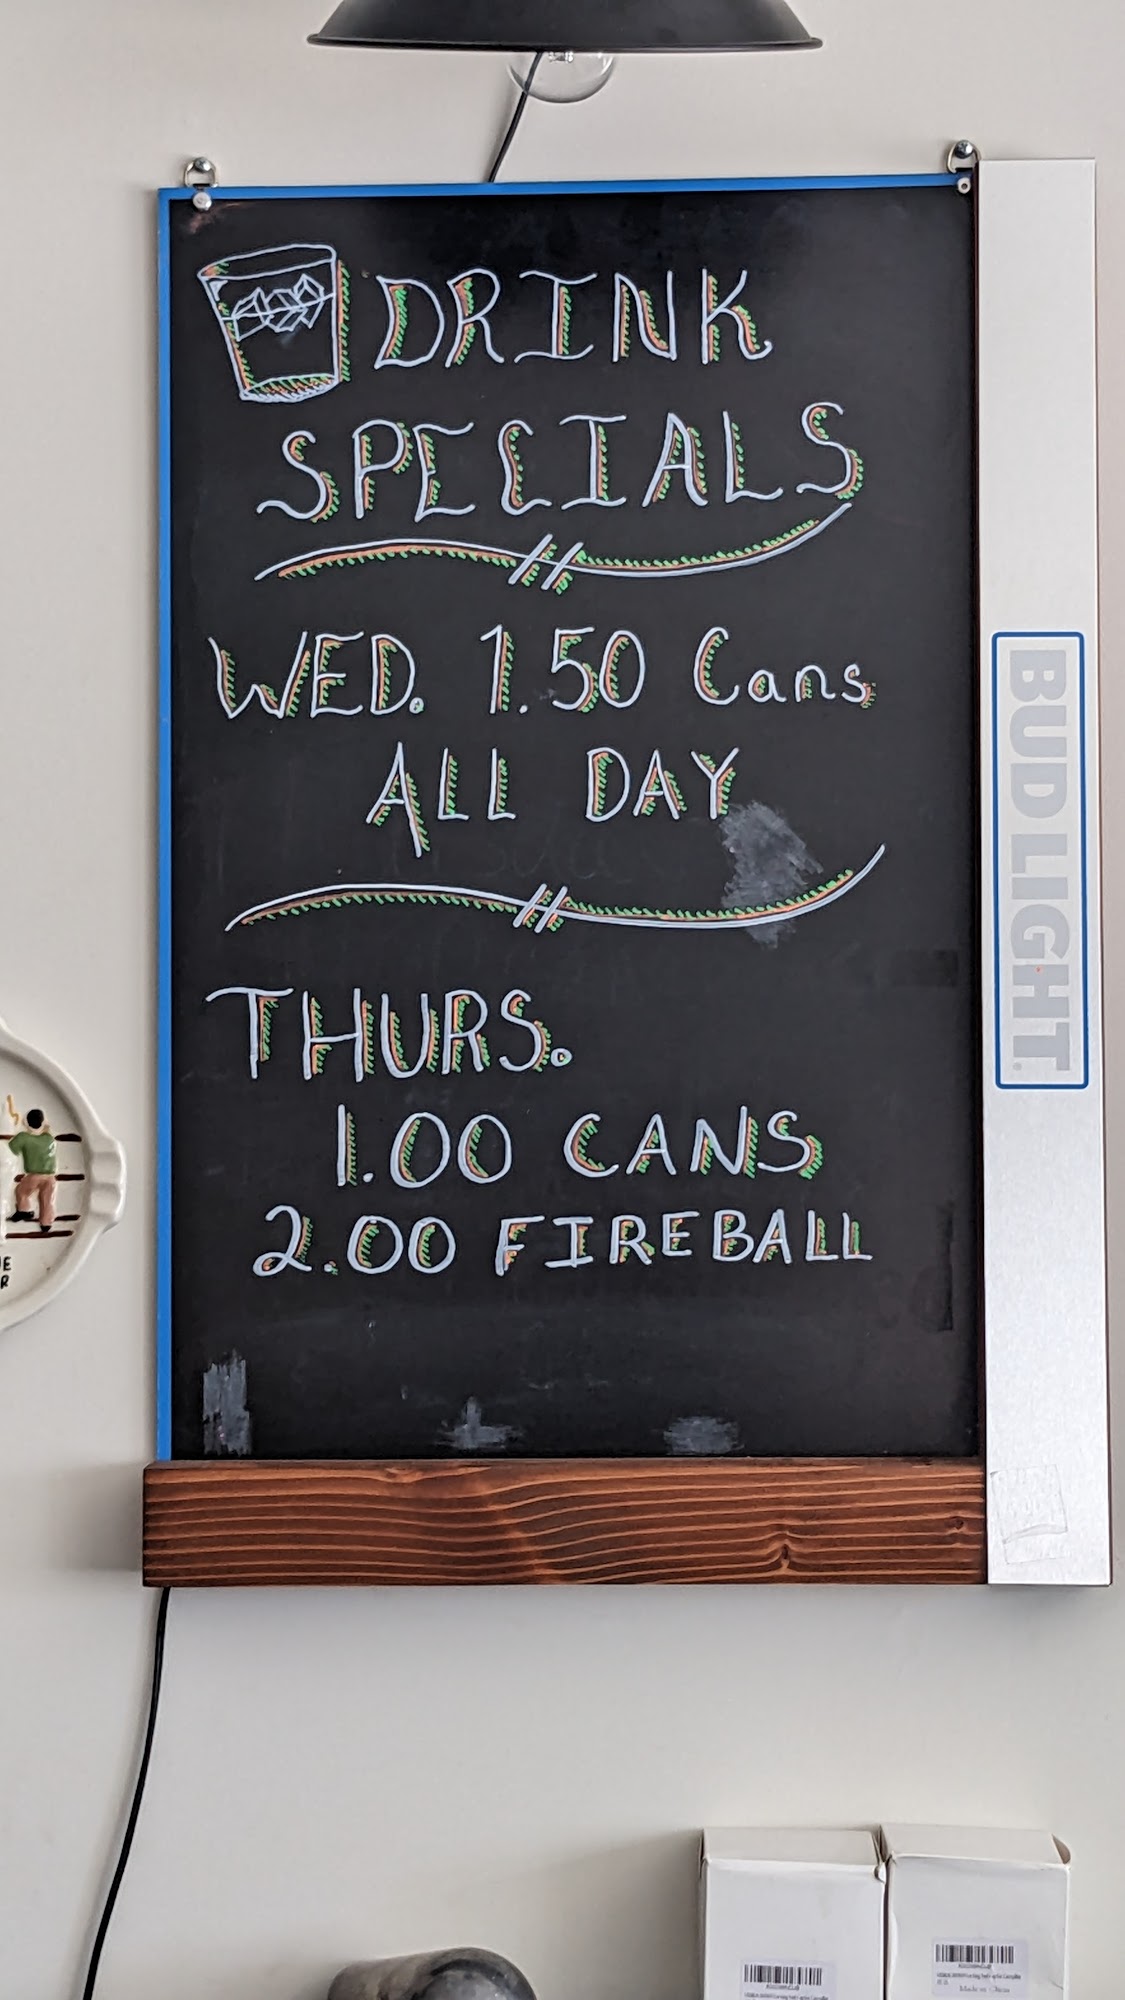 DRINK
SPECIALS
WED. 1.50 Cans
ALL DAY
THURS.
1.00 CANS
2.00 FIREBALL
BUD LIGHT
Made in China